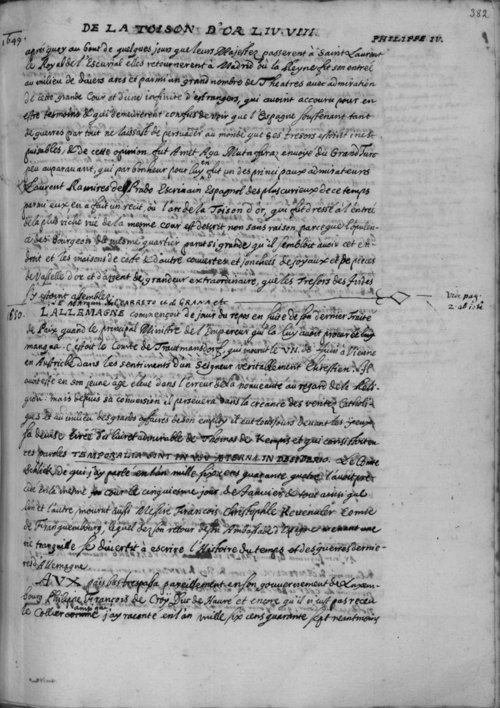 382
DE LA TOISON D'OR LIV. VIII.
PHILIPPE IV.
1649.
apres quoy au bout de quelques jours que leurs Majestez passerent à Saint Laurent
le Royal de l'Escurial elles retournerent à Madrid où la Reyne fit son entrée
au milieu de divers arcs et parmi un grand nombre de Theatres avec admiration
de cette grande Cour et d'une infinite d'estrangers, qui avoient accouru pour en
estre tesmoins & qui demeurerent confus de voir que l'Espagne soustenant tant
de guerres par tout ne laissoit de persuader au monde que ses tresors estoient ines
puisables, & de cette opinion fut Amet Aga Mutafaraz envoyé du Grand Turc
peu auparavant, qui par bonheur pour luy en fut un des principaux admirateurs
Laurent Ramires de Prado Escrivain Espagnol des plus curieux de ce temps
parmi eux en a fait un recit où l'arc de la Toison d'or, qui fut dressé à l'entrée
de la plus riche rüe de la mesme cour est descrit non sans raison parce que l'opulen
ce des Bourgeois du mesme quartier parut si grande qu'il sembloit avoir cet en
droit et les maisons de coste & d'autre couvertes et jonchees de joyaux et de pieces
de Vaiselle d'or et d'argent de grandeur extraordinaire, que les Tresors des Indes
s'y estoient assemblez.
LE MARQUIS DEL CARRETO DE GRANA etc.
Voir pag.
1650.
L'ALLEMAGNE commençoit de jouir du repos en suite de son dernier Traité
de Paix quand le principal Ministre de l'Empereur qui la luy avoit
manqua. C'estoit le Comte de Trautmansdorf, qui mourut le VII. de Juin à Vienne
en Austriche dans les sentiments d'un Seigneur veritablement Chrestien. Il
avoit esté en son jeune age eslevé dans l'erreur de la nouveauté au regard de la Reli
gion: mais depuis sa conversion il persevera dans la creance des veritez Catholi
ques et au milieu des grandes affaires de son employ il eut tousjours devant les yeux
sa devise tirée du livre admirable de Thomas de Kempis et qui consistoit en
ces paroles TEMPORALIA SINT IN USU ÆTERNA IN DESIDERIO. Le Comte
Schlick de qui j'ay parlé en l'an mille six cens quarante quatre l'avoit prece
dé en la mesme cour le cinquiesme jour de Janvier & tout ainsi que
l'un et l'autre mourut aussi Messire François Christophle Kevenuler Comte
de Franquembourg, lequel de son retour de son Ambassade d'Espagne menant une
vie tranquille se divertit à escrire l'Histoire du temps et des guerres dernie
res d'Allemagne.
AUX pays bas trepassa pareillement en son gouvernement de Luxem
bourg Philippe François de Croy Duc de Havré et encore qu'il n'eut pas receu
le Collier ainsi que j'ay raconté en l'an mille six cens quarante sept neantmoins